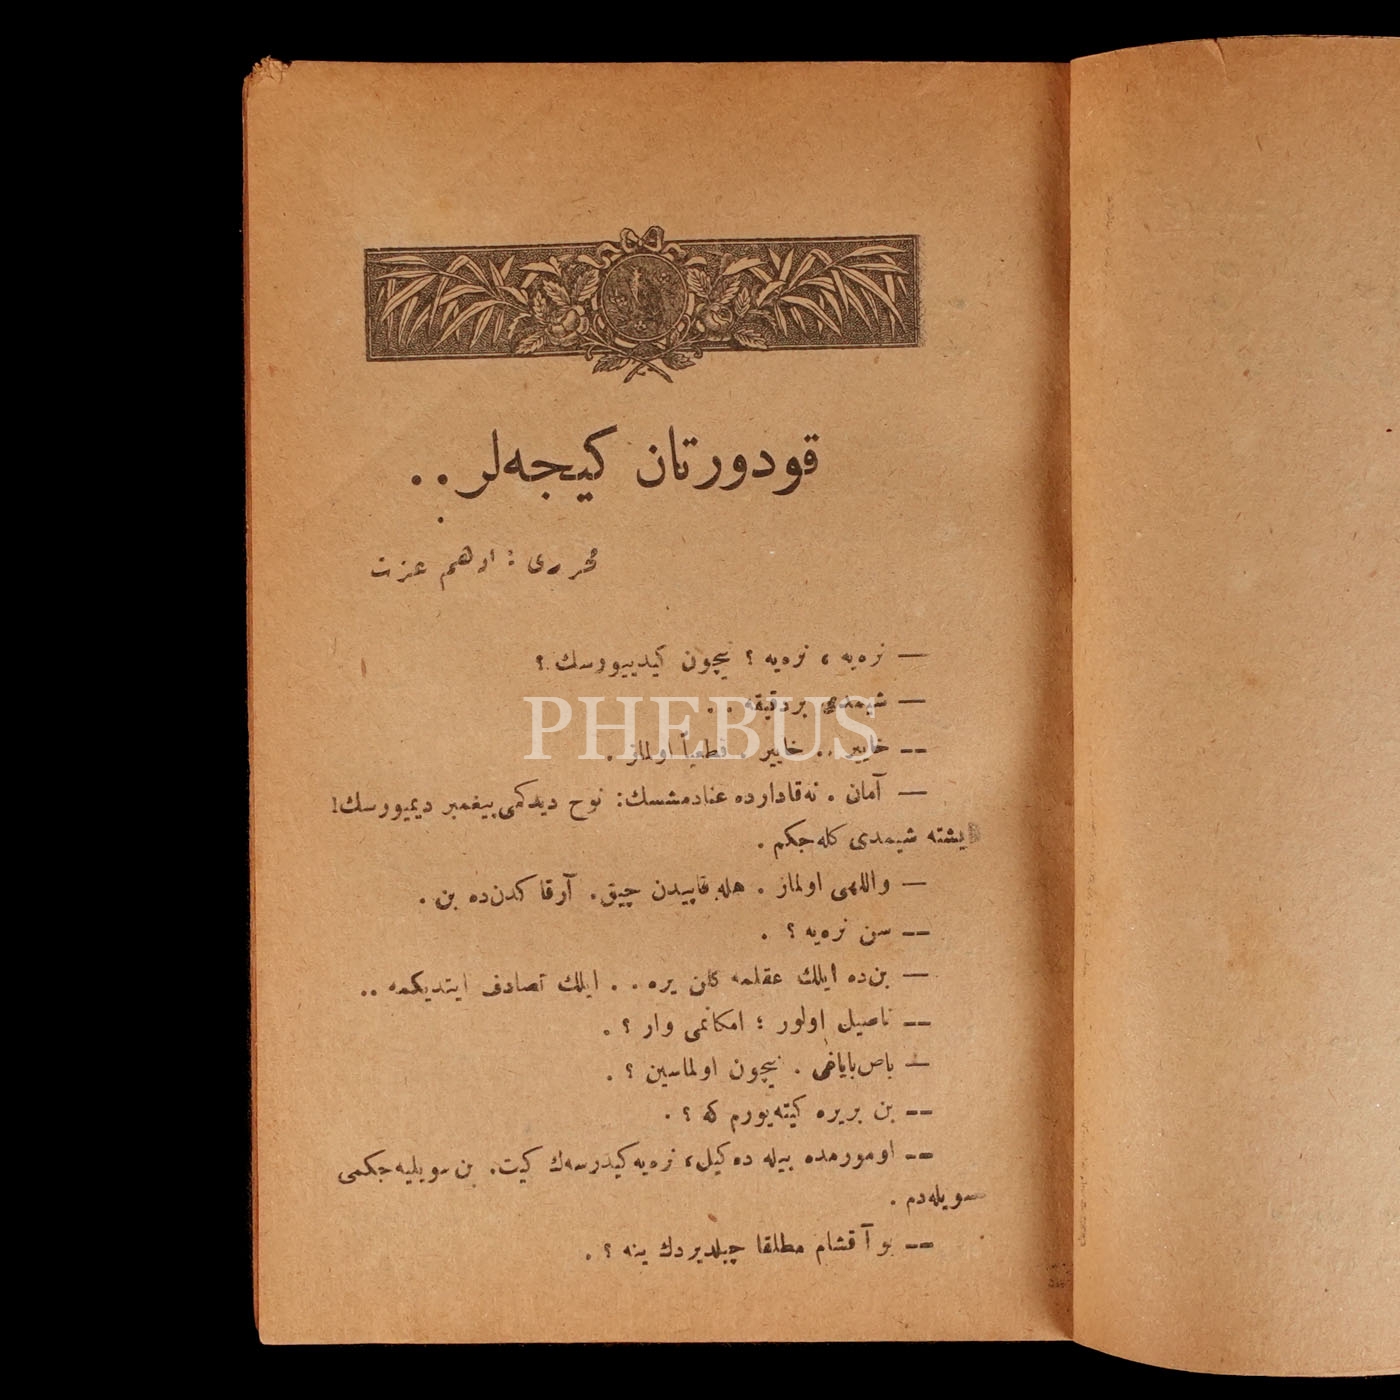 قودورتان كيجه‌لر..
محررى : ادهم عزت
— نره‌يه ، نره‌يه ؟ نيچون كيدييورسك ؟
— شيمدى بر دقيقه . .
PHEBUS
-- خايير .. خايير . قطعياً اولماز .
— آمان . نه‌قادارده عنادمشسك: نوح ديدكمى پيغمبر ديميورسك!
ايشته شيمدى كله‌جكم .
— واللهى اولماز . هله قاپيدن چيق. آرقا كدن‌ده بن .
-- سن نره‌يه ؟ .
— بن‌ده ايلك عقلمه كلن يره . . ايلك تصادف ايتديكمه ..
-- ناصيل اولور ؛ امكانمى وار ؟ .
— باص‌باياغى . نيچون اولماسين ؟ .
-- بن بريره كيته‌يورم كه ؟ .
-- اومورمده بيله ده‌كيل، نره‌يه كيدرسه‌ك كيت. بن سويليه‌جكمى
سويله‌دم .
-- بو آقشام مطلقا چيلديردك ينه ؟ .